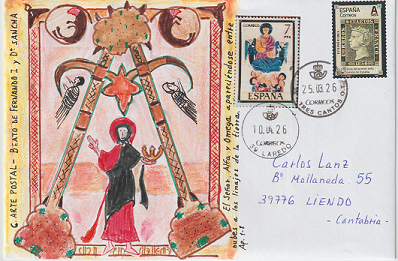 6. ARTE POSTAL - BEATO DE FERNANDO I Y Dª SANCHA
El Señor, Alfa y Omega apareciéndose entre
nubes a los linajes de la tierra
Ap.1-8
CORREOS
7
ESPAÑA
ESPAÑA
Correos
A
25.03.26
CORREOS
TRES CANTOS
10.04.26
CORREOS
39 LAREDO
Carlos Lanz
Bº Mollanada 55
39776 LIENDO
- Cantabria -